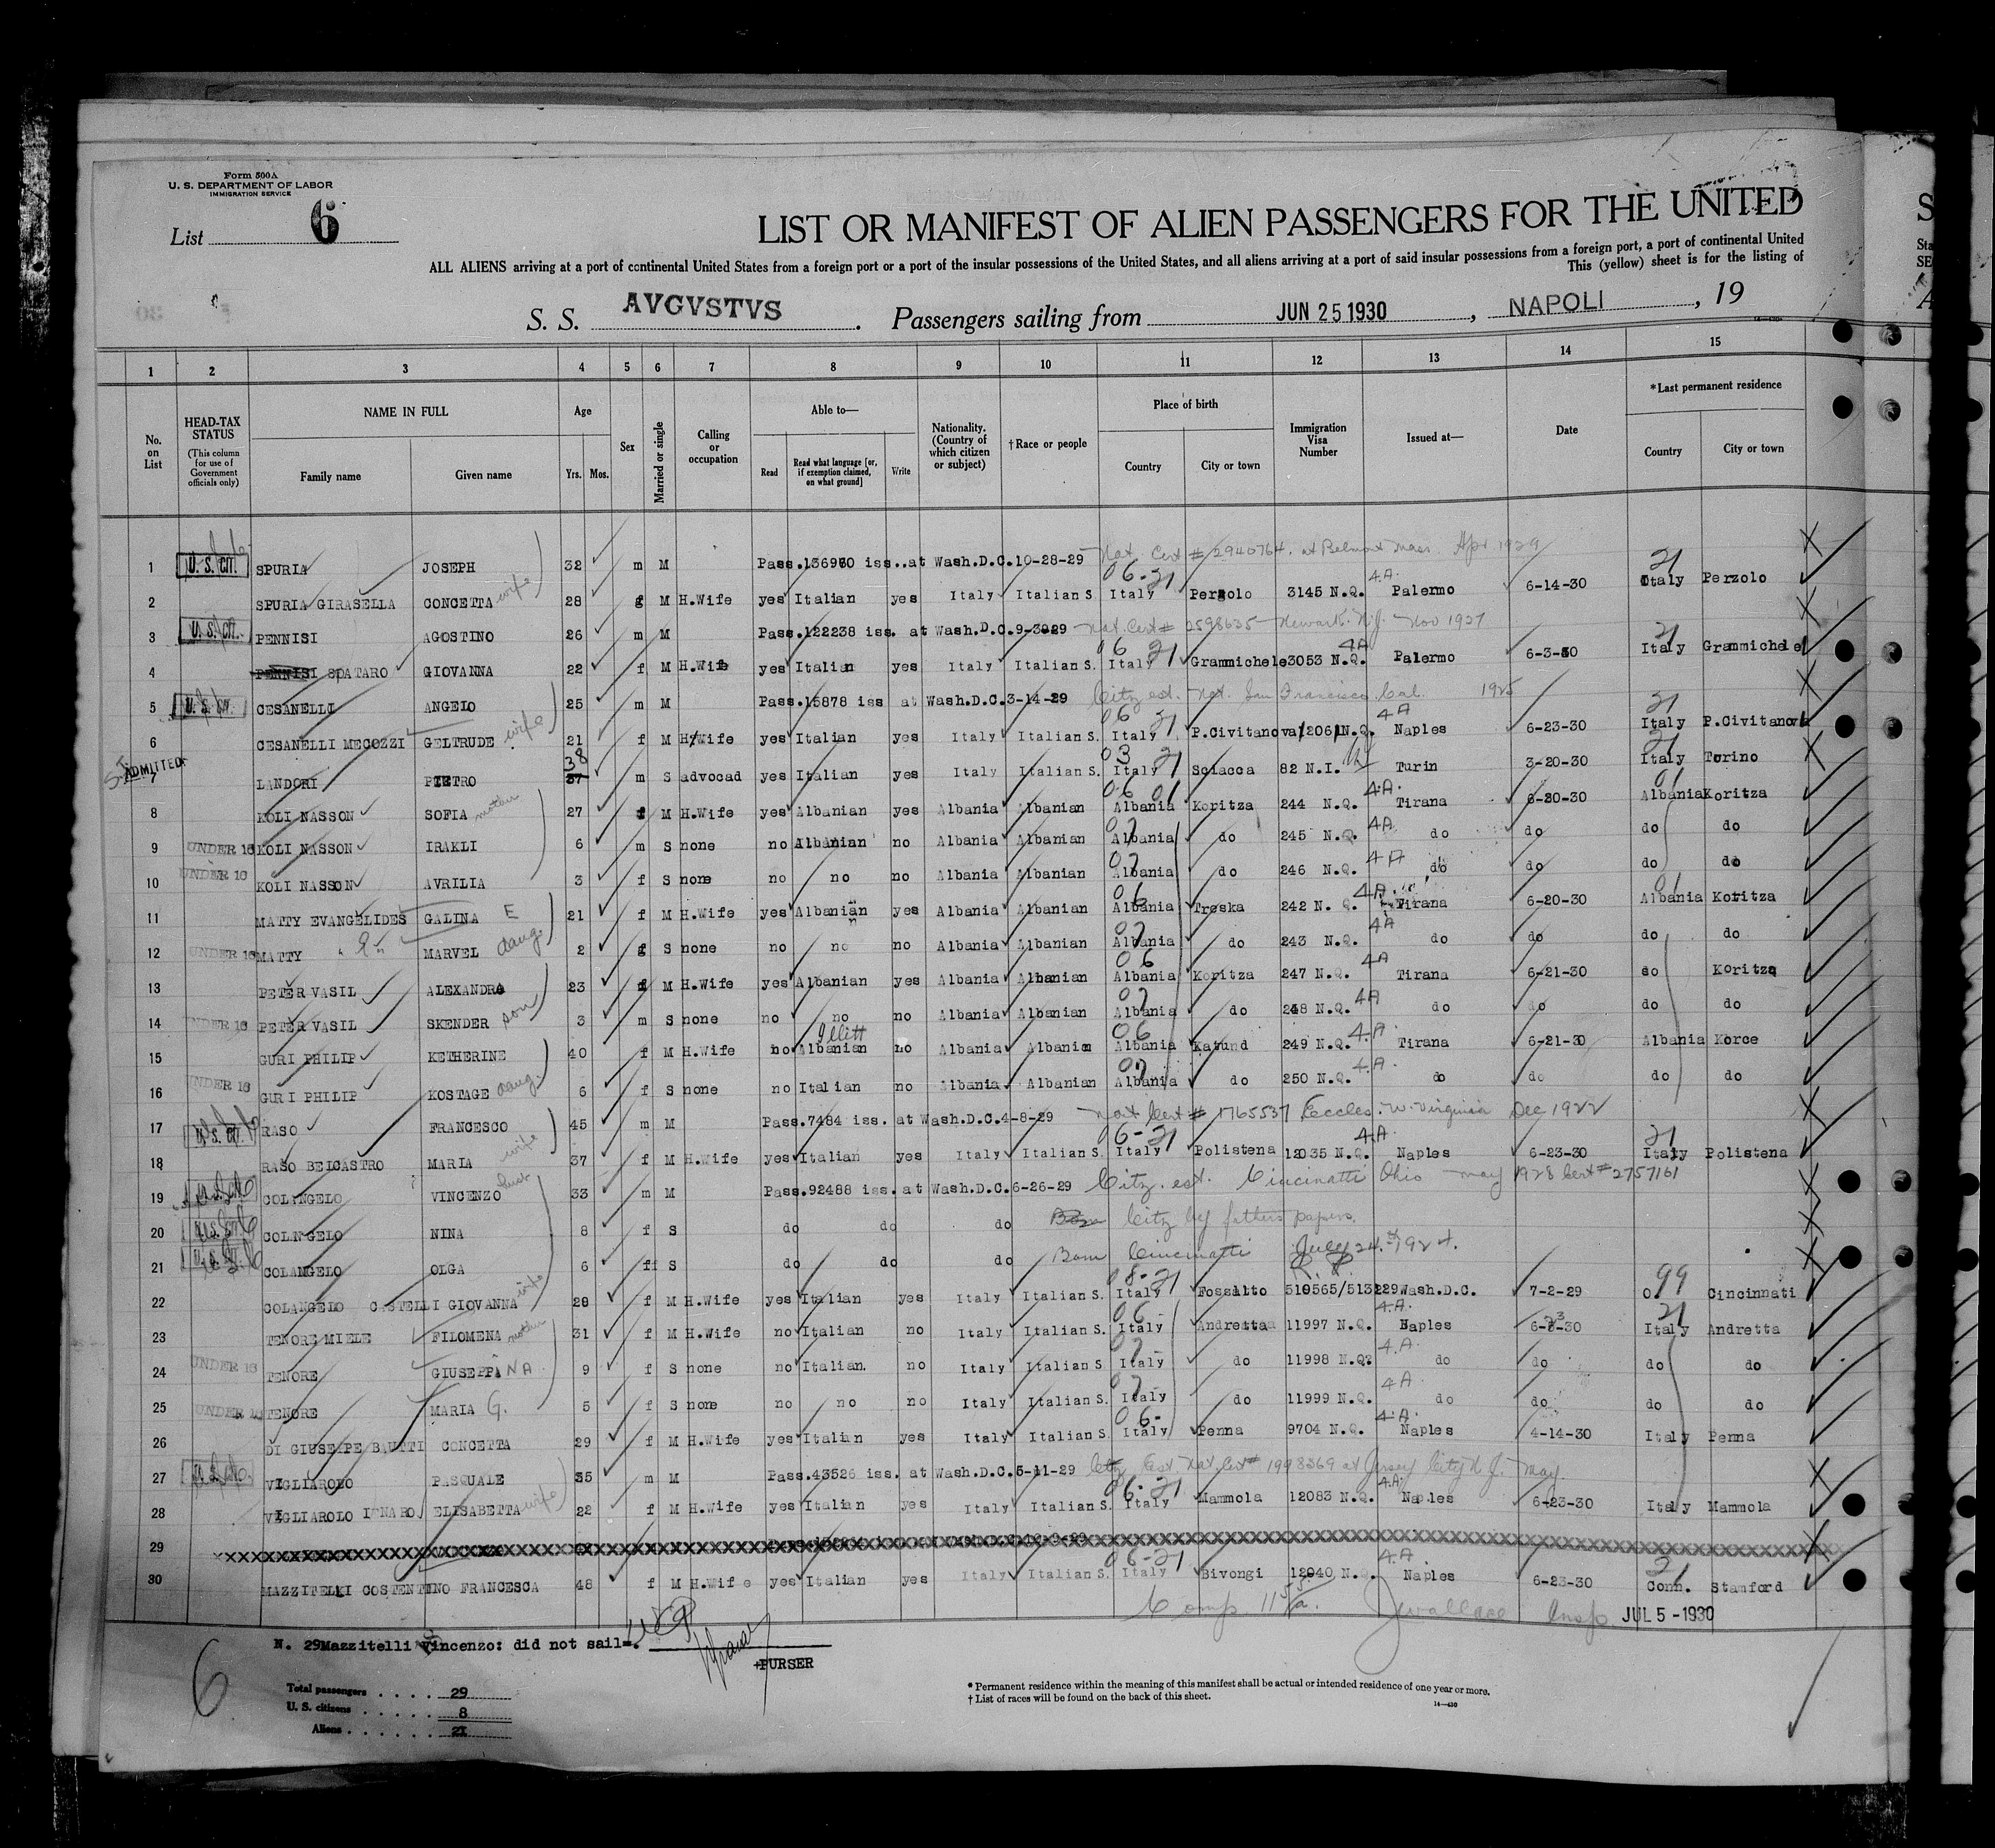 Form 500A
U. S. DEPARTMENT OF LABOR
IMMIGRATION SERVICE
List 6
LIST OR MANIFEST OF ALIEN PASSENGERS FOR THE UNITED
ALL ALIENS arriving at a port of continental United States from a foreign port or a port of the insular possessions of the United States, and all aliens arriving at a port of said insular possessions from a foreign port, a port of continental United
This (yellow) sheet is for the listing of
S. S. AVGVSTVS . Passengers sailing from JUN 25 1930 , NAPOLI , 19
1 2 3 4 5 6 7 8 9 10 11 12 13 14 15
No. on List
HEAD-TAX STATUS (This column for use of Government officials only)
NAME IN FULL
Family name Given name
Age
Yrs. Mos.
Sex
Married or single
Calling or occupation
Able to—
Read Read what language [or, if exemption claimed, on what ground] Write
Nationality. (Country of which citizen or subject)
†Race or people
Place of birth
Country City or town
Immigration Visa Number
Issued at—
Date
*Last permanent residence
Country City or town
1 U. S. CIT. SPURIA JOSEPH 32 m M Pass.136970 iss..at Wash.D.C.10-28-29 Nat. Cert # 2940764. at Belmont Mass. Apr 1929
2 SPURIA GIRASELLA CONCETTA wife 28 f M H.Wife yes Italian yes Italy Italian S. 06-21 Italy Perzolo 3145 N.Q. 4A. Palermo 6-14-30 21 Italy Perzolo
3 U. S. CIT. PENNISI AGOSTINO 26 m M Pass.122238 iss. at Wash.D.C.9-3029 Nat. Cert # 2598635 Newark. N.J. Nov 1927
4 PENNISI SPATARO GIOVANNA 22 f M H.Wife yes Italian yes Italy Italian S. 06 21 Italy Grammichele 3053 N.Q. 4A Palermo 6-3-30 21 Italy Grammichele
5 U. S. CIT. CESANELLI ANGELO 25 m M Pass.15878 iss at Wash.D.C.3-14-29 Citz est. Nat. San Francisco. Cal. 1925
6 CESANELLI MECOZZI GELTRUDE wife 21 f M H.Wife yes Italian yes Italy Italian S. 06 21 Italy P.Civitanova 12061 N.Q. 4A Naples 6-23-30 21 Italy P.Civitanova
ADMITTED
7 LANDORI PIETRO 38 37 m S advocad yes Italian yes Italy Italian S. 03 21 Italy Sciacca 82 N.I. Turin 3-20-30 21 Italy Torino
8 KOLI NASSON SOFIA mother 27 f M H.Wife yes Albanian yes Albania Albanian 06 01 Albania Koritza 244 N.Q. 4A. Tirana 6-20-30 01 Albania Koritza
9 UNDER 16 KOLI NASSON IRAKLI 6 m S none no Albanian no Albania Albanian 07 Albania do 245 N.Q. 4A do do do do
10 UNDER 16 KOLI NASSON AVRILIA 3 f S none no no no Albania Albanian 07 Albania do 246 N.Q. 4A do do do do
11 MATTY EVANGELIDES GALINA E 21 f M H.Wife yes Albanian yes Albania Albanian 06 Albania Treska 242 N. Q. 4A. Tirana 6-20-30 01 Albania Koritza
12 UNDER 16 MATTY " E " MARVEL daug. 2 f S none no no no Albania Albanian 07 Albania do 243 N.Q. 4A do do do do
13 PETER VASIL ALEXANDRA 23 f M H.Wife yes Albanian yes Albania Albanian 06 Albania Koritza 247 N.Q. 4A Tirana 6-21-30 do Koritza
14 UNDER 16 PETER VASIL SKENDER son 3 m S none no no no Albania Albanian 07 Albania do 248 N.Q. 4A do do do do
15 GURI PHILIP KETHERINE 40 f M H.Wife no Illitt Albanian no Albania Albanian 06 Albania Katund 249 N.Q. 4.A. Tirana 6-21-30 Albania Korce
16 UNDER 16 GURI PHILIP KOSTAGE daug. 6 f S none no Italian no Albania Albanian 07 Albania do 250 N.Q. 4.A. do do do do
17 U. S. CIT. RASO FRANCESCO 45 m M Pass.7484 iss. at Wash.D.C.4-8-29 Nat Cert # 1765537 Eccles. W. Virginia Dec 1922
18 RASO BELCASTRO MARIA wife 37 f M H.Wife yes Italian yes Italy Italian S. 06-21 Italy Polistena 12035 N.Q. 4.A. Naples 6-23-30 21 Italy Polistena
19 COLANGELO VINCENZO 33 m M Pass.92488 iss. at Wash.D.C.6-26-29 Citz. est. Cincinatti Ohio may 1928 Cert # 2757161
20 U. S. CIT. COLANGELO NINA 8 f S do do do Citz by fathers papers.
21 U. S. CIT. COLANGELO OLGA 6 f S do do do Born Cincinatti July 24th 1924.
22 COLANGELO CASTELLI GIOVANNA wife 28 f M H.Wife yes Italian yes Italy Italian S. 08-21 Italy Fossalto 519565/513229 R. P. Wash.D.C. 7-2-29 99 Cincinnati
23 TENORE MIELE FILOMENA mother 31 f M H.Wife no Italian no Italy Italian S. 06 Italy Andretta 11997 N.Q. 4.A. Naples 6-23-30 21 Italy Andretta
24 UNDER 16 TENORE GIUSEPPINA 9 f S none no Italian. no Italy Italian S. 07 Italy do 11998 N.Q. 4.A. do do do do
25 UNDER 16 TENORE MARIA G. 5 f S none no no no Italy Italian S. 07 Italy do 11999 N.Q. 4A. do do do do
26 DI GIUSEPPE BAUTTI CONCETTA 29 f M H.Wife yes Italian yes Italy Italian S. 06- Italy Penna 9704 N.Q. 4.A. Naples 4-14-30 Italy Penna
27 VIGLIAROLO PASQUALE 35 m M Pass.43526 iss. at Wash.D.C.5-11-29 Citz Est Nat. Cert # 1998369 at Jersey City N J. May.
28 VIGLIAROLO ELISABETTA wife 22 f M H.Wife yes Italian yes Italy Italian S. 06-21 Italy Mammola 12083 N.Q. 4.A. Naples 6-23-30 Italy Mammola
29
30 MAZZITELLI COSTENTINO FRANCESCA 48 f M H.Wife yes Italian yes Italy Italian S. 06-21 Italy Bivongi 12040 N.Q. 4.A Naples 6-23-30 21 Conn. Stamford
Comp. 11 55/a. JWallace Insp. JUL 5 - 1930
N. 29 Mazzitelli Vincenzo: did not sail=.
+PURSER
6
Total passengers . . . . 29
U. S. citizens . . . . . 8
Aliens . . . . . . 21
* Permanent residence within the meaning of this manifest shall be actual or intended residence of one year or more.
† List of races will be found on the back of this sheet.
14—430